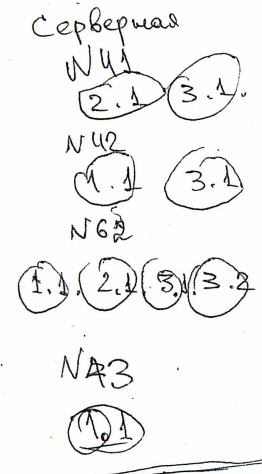 Серверная
N41
2.1 3.1.
N42
1.1 3.1
N62
1.1. 2.1 3.1. 3.2
N43
1.1